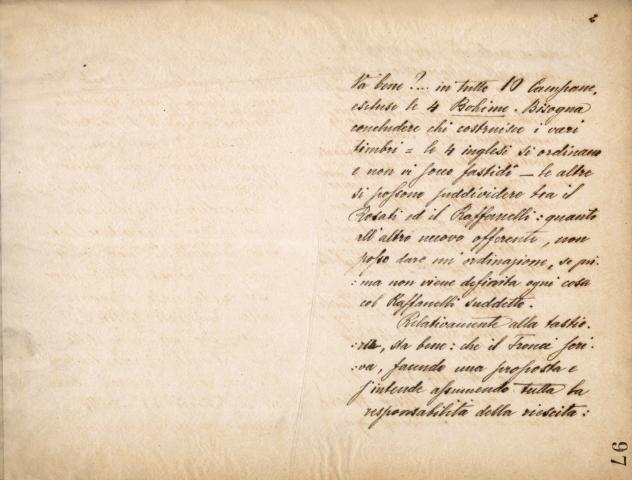 2
Và bene?... in tutto 10 Campane,
escluse le 4 Bohème. Bisogna
concludere chi costruisce i vari
timbri = le 4 inglesi si ordinano
e non vi sono fastidî — le altre
si possono suddividere tra il
Rosati ed il Raffanelli: quanto
all'altro nuovo offerente, non
posso dare un'ordinazione, se pri-
:ma non viene definita ogni cosa
col Raffanelli suddetto.
Relativamente alla tastie-
:ra, sta bene: che il Tronci scri-
:va, facendo una proposta e
s'intende assumendo tutta la
responsabilità della riescita:
97